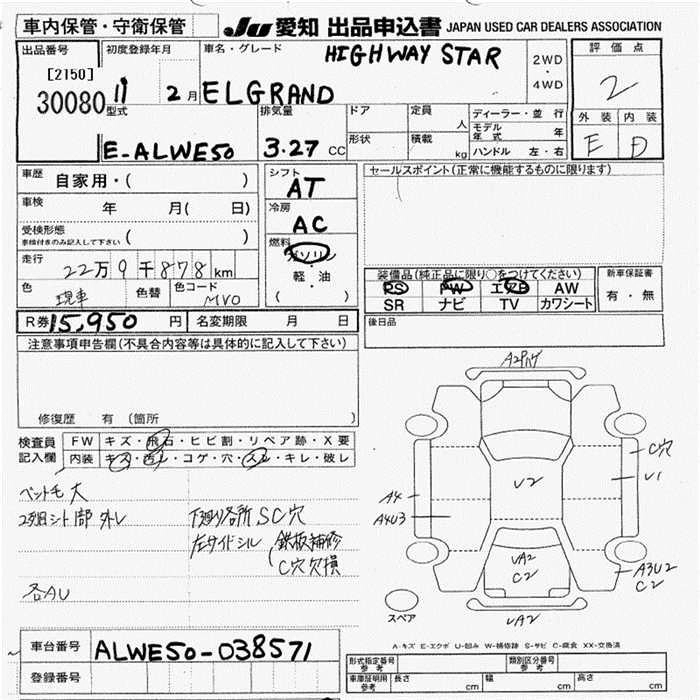 車内保管・守衛保管
JU 愛知 出品申込書 JAPAN USED CAR DEALERS ASSOCIATION
出品番号 初度登録年月 車名・グレード HIGHWAY STAR 2WD ・ 4WD 評価点
[2150]
30080 11 2月 ELGRAND 2
型式 排気量 ドア 定員 人 ディーラー・並行 外装 内装
モデル年式 年
E-ALWE50 3.27 CC 形状 積載 kg ハンドル 左・右 E D
車歴 自家用・( ) シフト AT セールスポイント(正常に機能するものに限ります)
車検 年 月( 日) 冷房 AC
受検形態 車検付きのみ記入して下さい ( )
燃料 ガソリン ・ 軽・油 ( )
走行 22万9千878km
装備品(純正品に限り○をつけてください) 新車保証書
色 現車 色替 色コード MV0
PS PW エアB AW 有・無
SR ナビ TV カワシート
R券 15,950円 名変期限 月 日 後日品
注意事項申告欄(不具合内容等は具体的に記入して下さい)
修復歴 有 (箇所 )
検査員記入欄 FW キズ・飛石・ヒビ割・リペア跡・X要
内装 キズ・汚レ・コゲ・穴・スレ・キレ・破レ
ペット毛 大
2列目シート部 外レ 下廻り各所 SC穴
左サイドシル (鉄板補修
C穴欠損
各AU
A2
C穴
U2 U1
A4
A4U3
UA2
C2
A3U2
C2
UA2
スペア
A-キズ E-エクボ U-凹み W-補修跡 S-サビ C-腐食 XX-交換済
車台番号 ALWE50-038571
登録番号
形式指定番号 参考 類別区分番号 参考
車庫証明用 参考 長さ cm 幅 cm 高さ cm